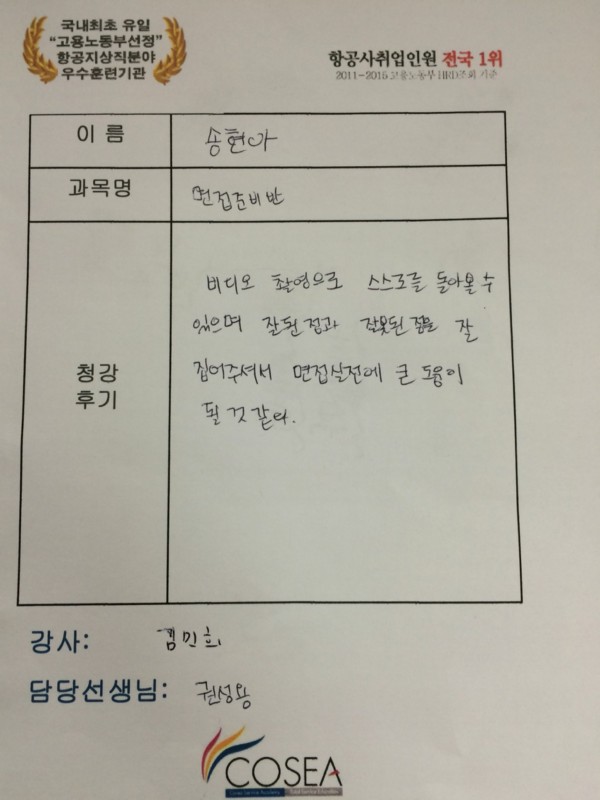 국내최초 유일
"고용노동부선정"
항공지상직분야
우수훈련기관
항공사취업인원 전국 1위
2011-2015 고용노동부 HRD조회 기준
이 름
송현아
과목명
면접준비반
청강
후기
비디오 촬영으로 스스로를 돌아볼 수
있으며 잘된 점과 잘못된 점을 잘
집어주셔서 면접실전에 큰 도움이
될 것 같다.
강사: 김민희
담당선생님: 권성용
COSEA